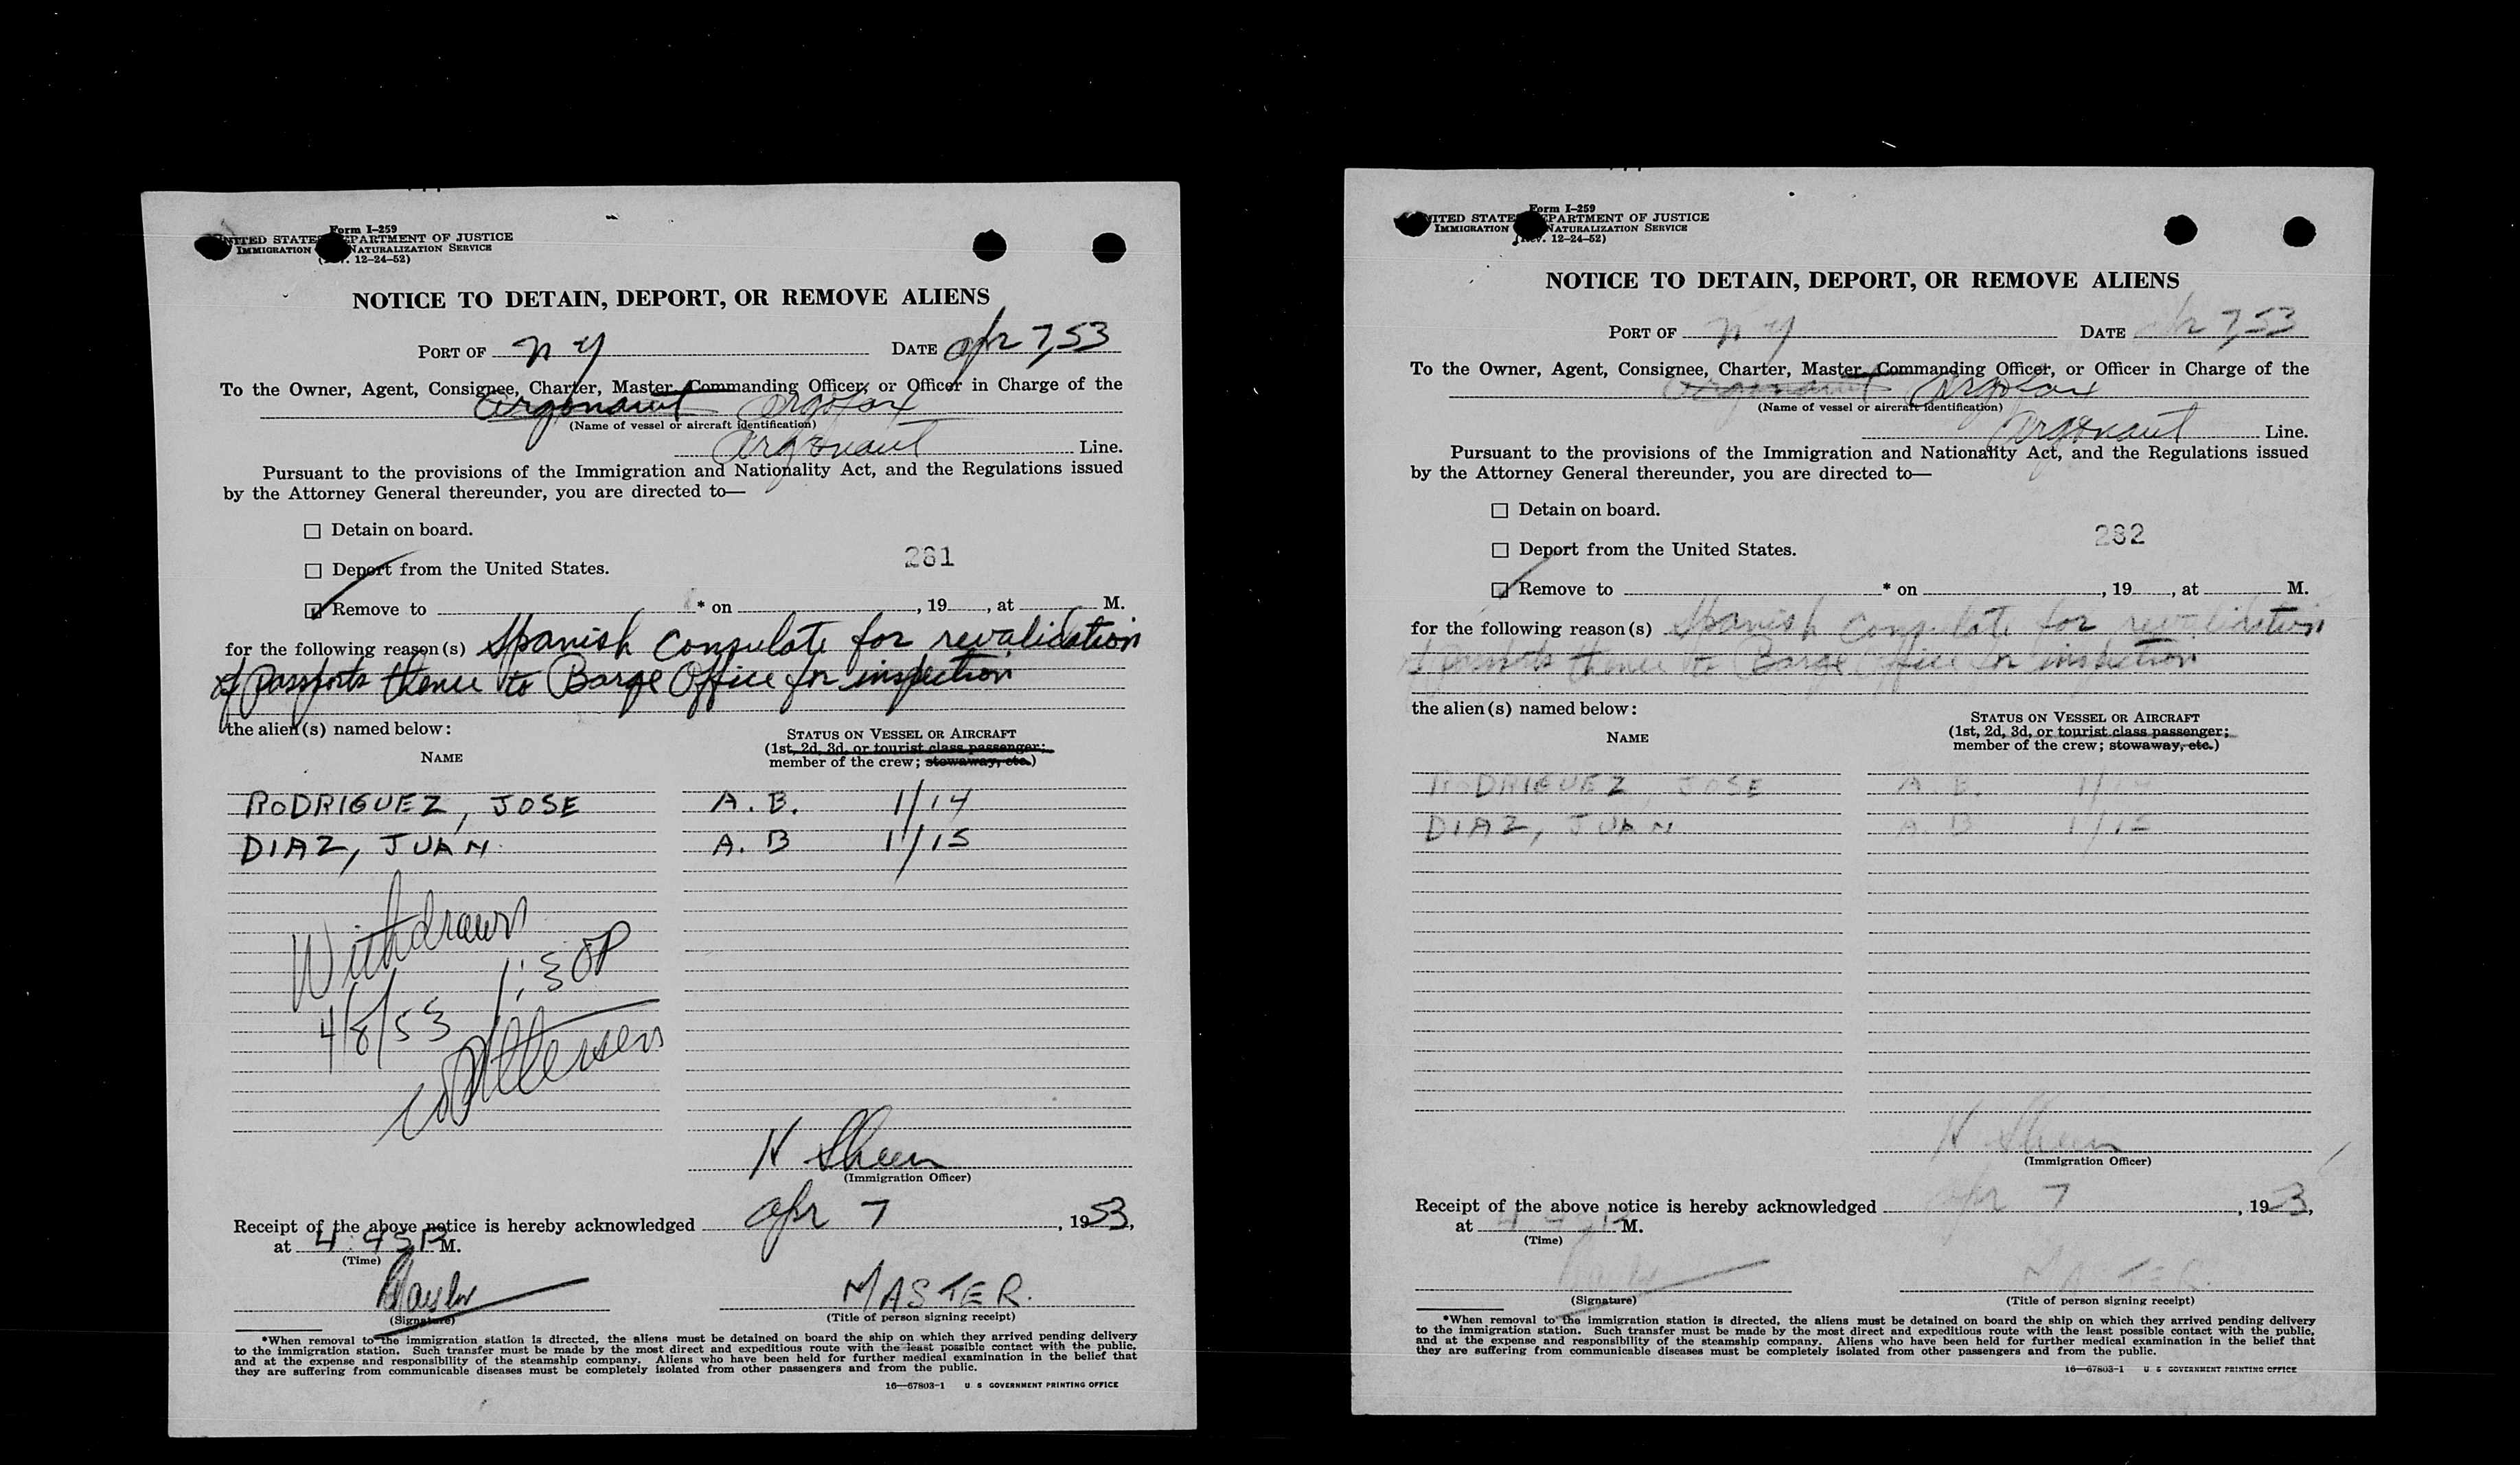 Form I-259
UNITED STATES DEPARTMENT OF JUSTICE
IMMIGRATION NATURALIZATION SERVICE
12-24-52)
NOTICE TO DETAIN, DEPORT, OR REMOVE ALIENS
PORT OF N Y DATE Apr 7, 53
To the Owner, Agent, Consignee, Charter, Master, Commanding Officer, or Officer in Charge of the
Argonaut Argofax
(Name of vessel or aircraft identification)
Argonaut Line.
Pursuant to the provisions of the Immigration and Nationality Act, and the Regulations issued
by the Attorney General thereunder, you are directed to—
Detain on board.
281
Deport from the United States.
Remove to * on , 19 , at M.
for the following reason(s) Spanish Consulate for revalidation
of Passports thence to Barge Office for inspection
the alien(s) named below:
NAME
STATUS ON VESSEL OR AIRCRAFT
(1st, 2d, 3d, or tourist class passenger;
member of the crew; stowaway, etc.)
RODRIGUEZ, JOSE A. B. 1/14
DIAZ, JUAN A. B 1/15
Withdrawn
1:30P
4/8/53
H Sheen
(Immigration Officer)
Receipt of the above notice is hereby acknowledged Apr 7, 1953,
at 4:45P M.
(Time)
MASTER.
(Signature) (Title of person signing receipt)
*When removal to the immigration station is directed, the aliens must be detained on board the ship on which they arrived pending delivery
to the immigration station. Such transfer must be made by the most direct and expeditious route with the least possible contact with the public,
and at the expense and responsibility of the steamship company. Aliens who have been held for further medical examination in the belief that
they are suffering from communicable diseases must be completely isolated from other passengers and from the public.
16—67803-1 U. S. GOVERNMENT PRINTING OFFICE
Form I-259
UNITED STATES DEPARTMENT OF JUSTICE
IMMIGRATION NATURALIZATION SERVICE
(Rev. 12-24-52)
NOTICE TO DETAIN, DEPORT, OR REMOVE ALIENS
PORT OF N Y DATE Apr 7, 53
To the Owner, Agent, Consignee, Charter, Master, Commanding Officer, or Officer in Charge of the
Argonaut Argofax
(Name of vessel or aircraft identification)
Argonaut Line.
Pursuant to the provisions of the Immigration and Nationality Act, and the Regulations issued
by the Attorney General thereunder, you are directed to—
Detain on board.
282
Deport from the United States.
Remove to * on , 19 , at M.
for the following reason(s) Spanish Consulate for revalidation
of Passports thence to Barge Office for inspection
the alien(s) named below:
NAME
STATUS ON VESSEL OR AIRCRAFT
(1st, 2d, 3d, or tourist class passenger;
member of the crew; stowaway, etc.)
RODRIGUEZ, JOSE A. B. 1/14
DIAZ, JUAN A. B 1/15
H Sheen
(Immigration Officer)
Receipt of the above notice is hereby acknowledged Apr 7, 1953,
at 4:45P M.
(Time)
MASTER.
(Signature) (Title of person signing receipt)
*When removal to the immigration station is directed, the aliens must be detained on board the ship on which they arrived pending delivery
to the immigration station. Such transfer must be made by the most direct and expeditious route with the least possible contact with the public,
and at the expense and responsibility of the steamship company. Aliens who have been held for further medical examination in the belief that
they are suffering from communicable diseases must be completely isolated from other passengers and from the public.
16—67803-1 U. S. GOVERNMENT PRINTING OFFICE